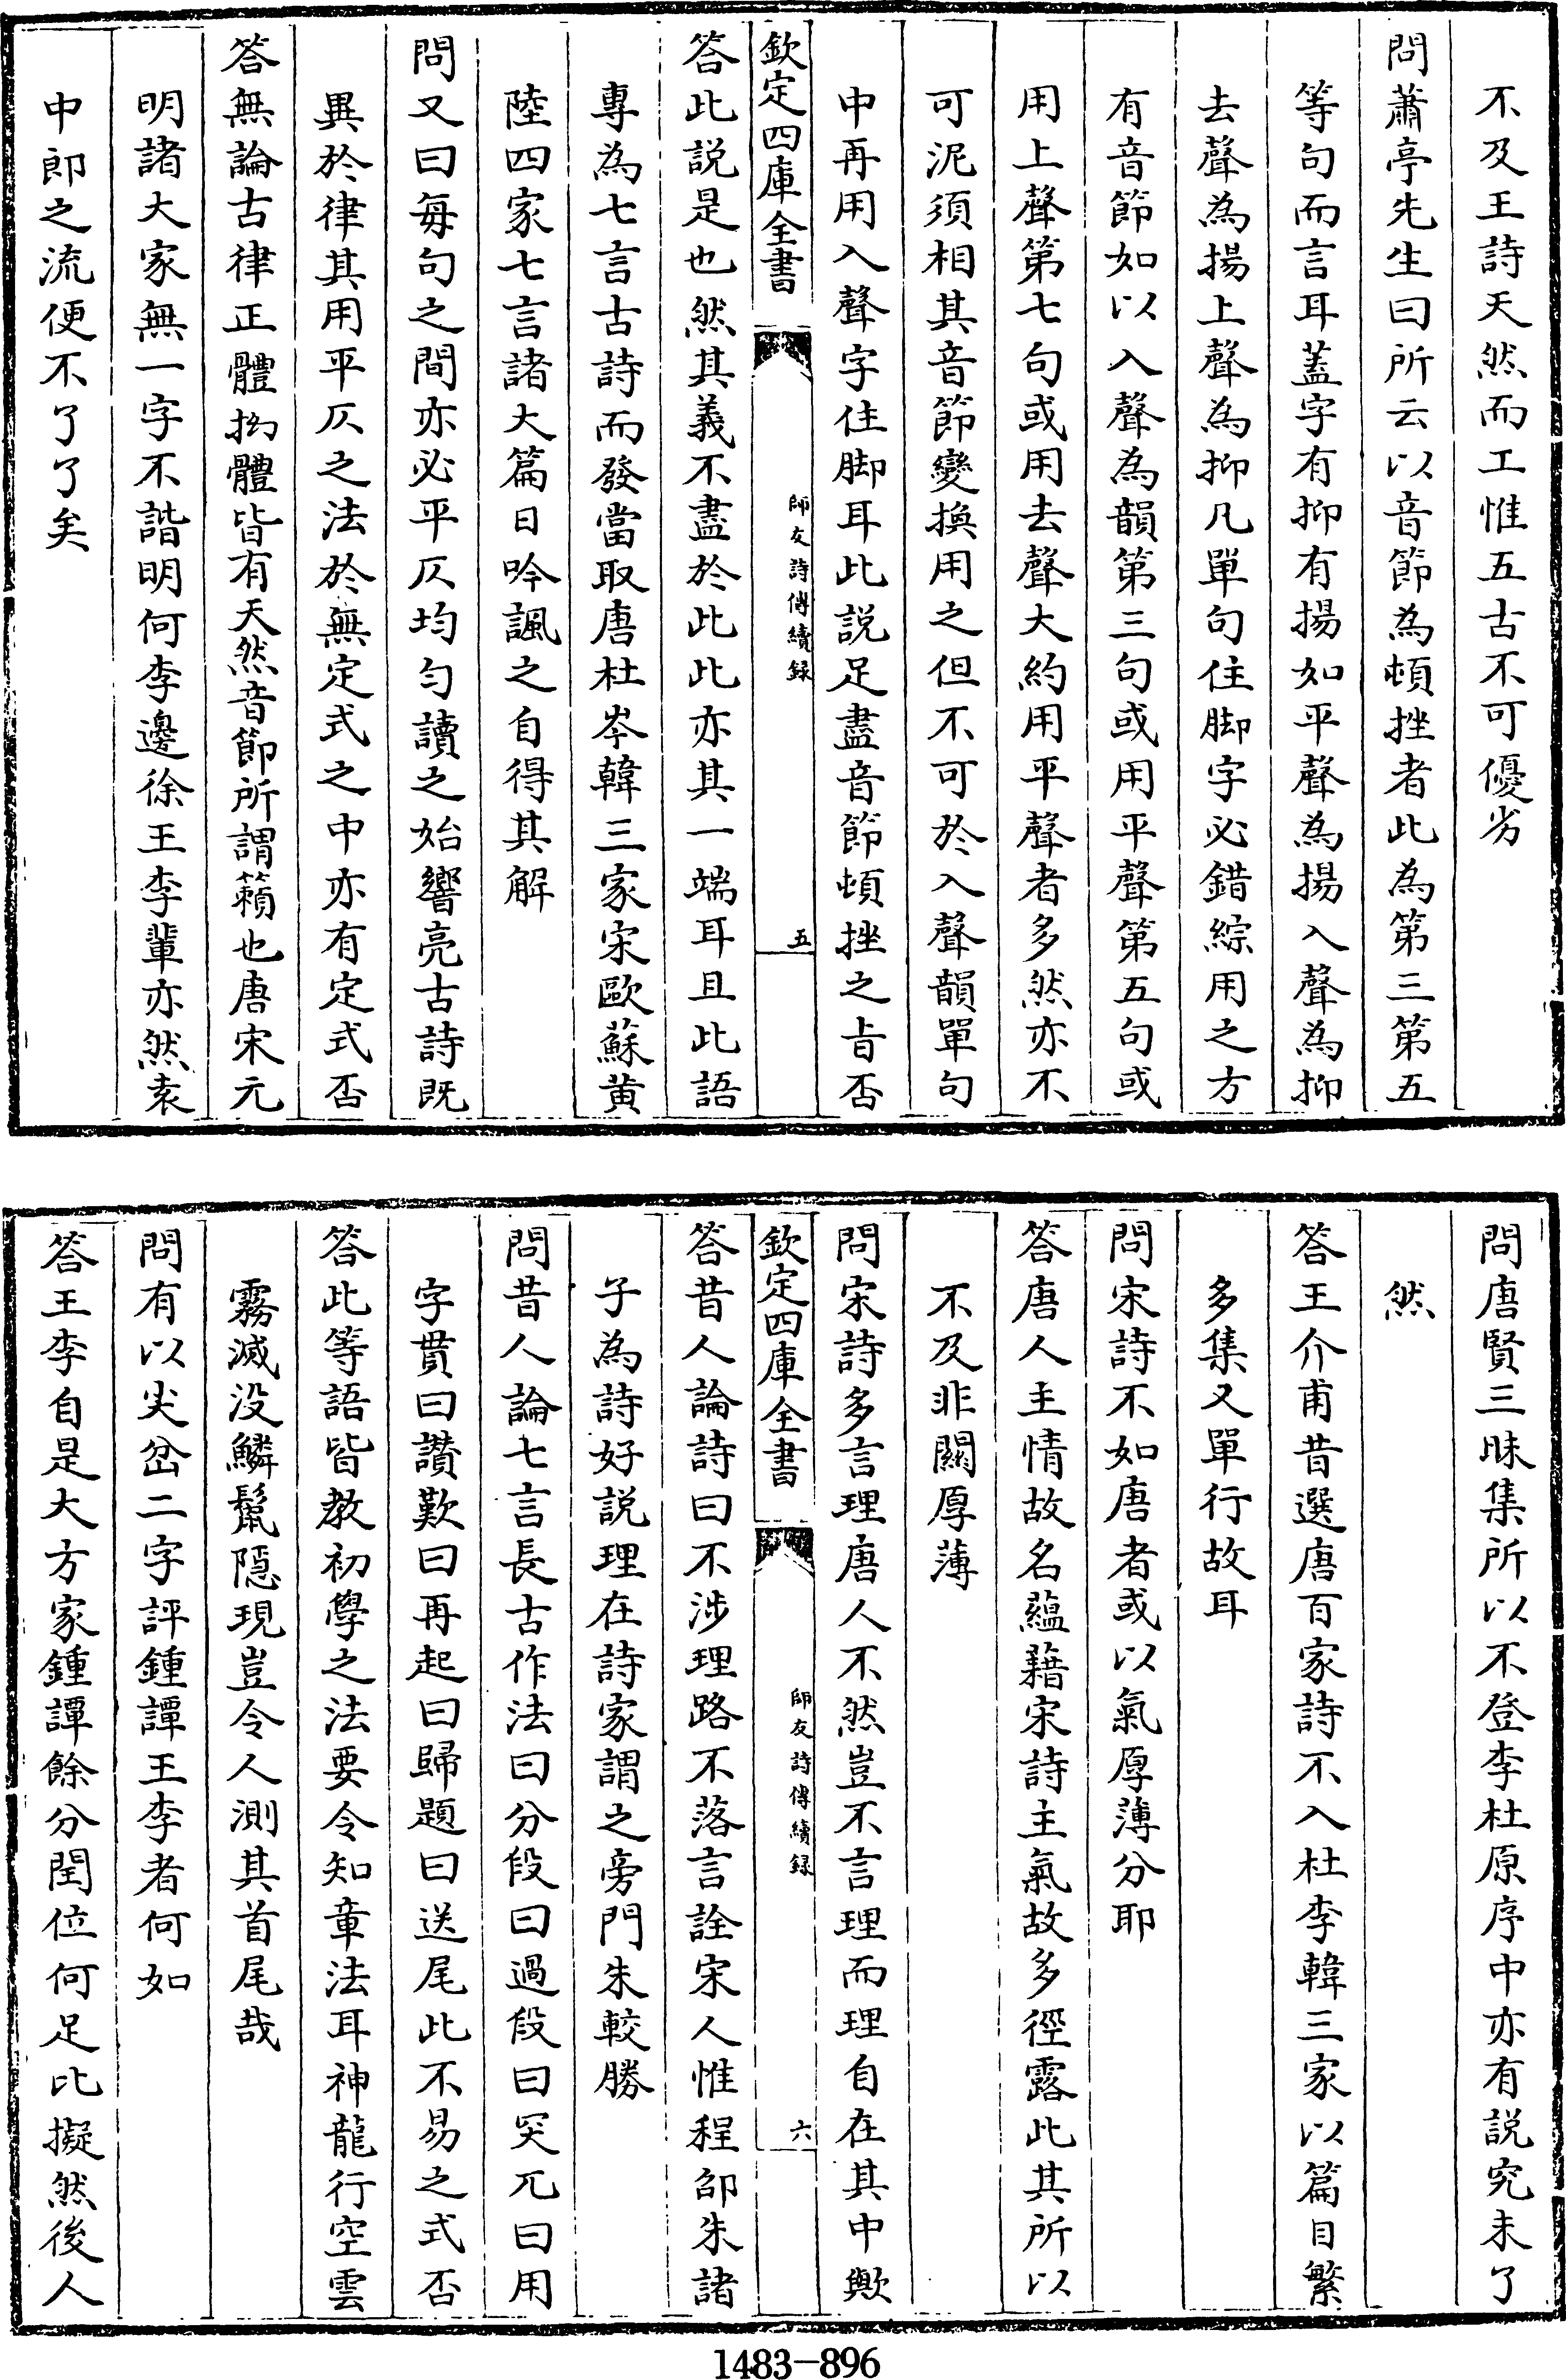 不及王詩天然而工惟五古不可優劣
問蕭亭先生曰所云以音節為頓挫者此為第三第五
等句而言耳蓋字有抑有揚如平聲為揚入聲為抑
去聲為揚上聲為抑凡單句住脚字必錯綜用之方
有音節如以入聲為韻第三句或用平聲第五句或
用上聲第七句或用去聲大約用平聲者多然亦不
可泥須相其音節變換用之但不可於入聲韻單句
中再用入聲字住脚耳此説足盡音節頓挫之㫖否
欽定四庫全書
師友詩傳續録
五
答此説是也然其義不盡於此此亦其一端耳且此語
專為七言古詩而發當取唐杜岑韓三家宋歐蘇黄
陸四家七言諸大篇日吟諷之自得其解
問又曰每句之間亦必平仄均勻讀之始響亮古詩既
異於律其用平仄之法於無定式之中亦有定式否
答無論古律正體拗體皆有天然音節所謂籟也唐宋元
明諸大家無一字不諧明何李邊徐王李輩亦然袁
中郎之流便不了了矣
問唐賢三昧集所以不登李杜原序中亦有説究未了
然
答王介甫昔選唐百家詩不入杜李韓三家以篇目繁
多集又單行故耳
問宋詩不如唐者或以氣厚薄分耶
答唐人主情故名藴藉宋詩主氣故多徑露此其所以
不及非關厚薄
問宋詩多言理唐人不然豈不言理而理自在其中歟
欽定四庫全書
師友詩傳續録
六
答昔人論詩曰不涉理路不落言詮宋人惟程邵朱諸
子為詩好説理在詩家謂之旁門朱較勝
問昔人論七言長古作法曰分段曰過段曰突兀曰用
字貫曰讚歎曰再起曰歸題曰送尾此不易之式否
答此等語皆教初學之法要令知章法耳神龍行空雲
霧滅没鱗鬛隱現豈令人測其首尾哉
問有以尖岔二字評鍾譚王李者何如
答王李自是大方家鍾譚餘分閏位何足比擬然後人
1483-896